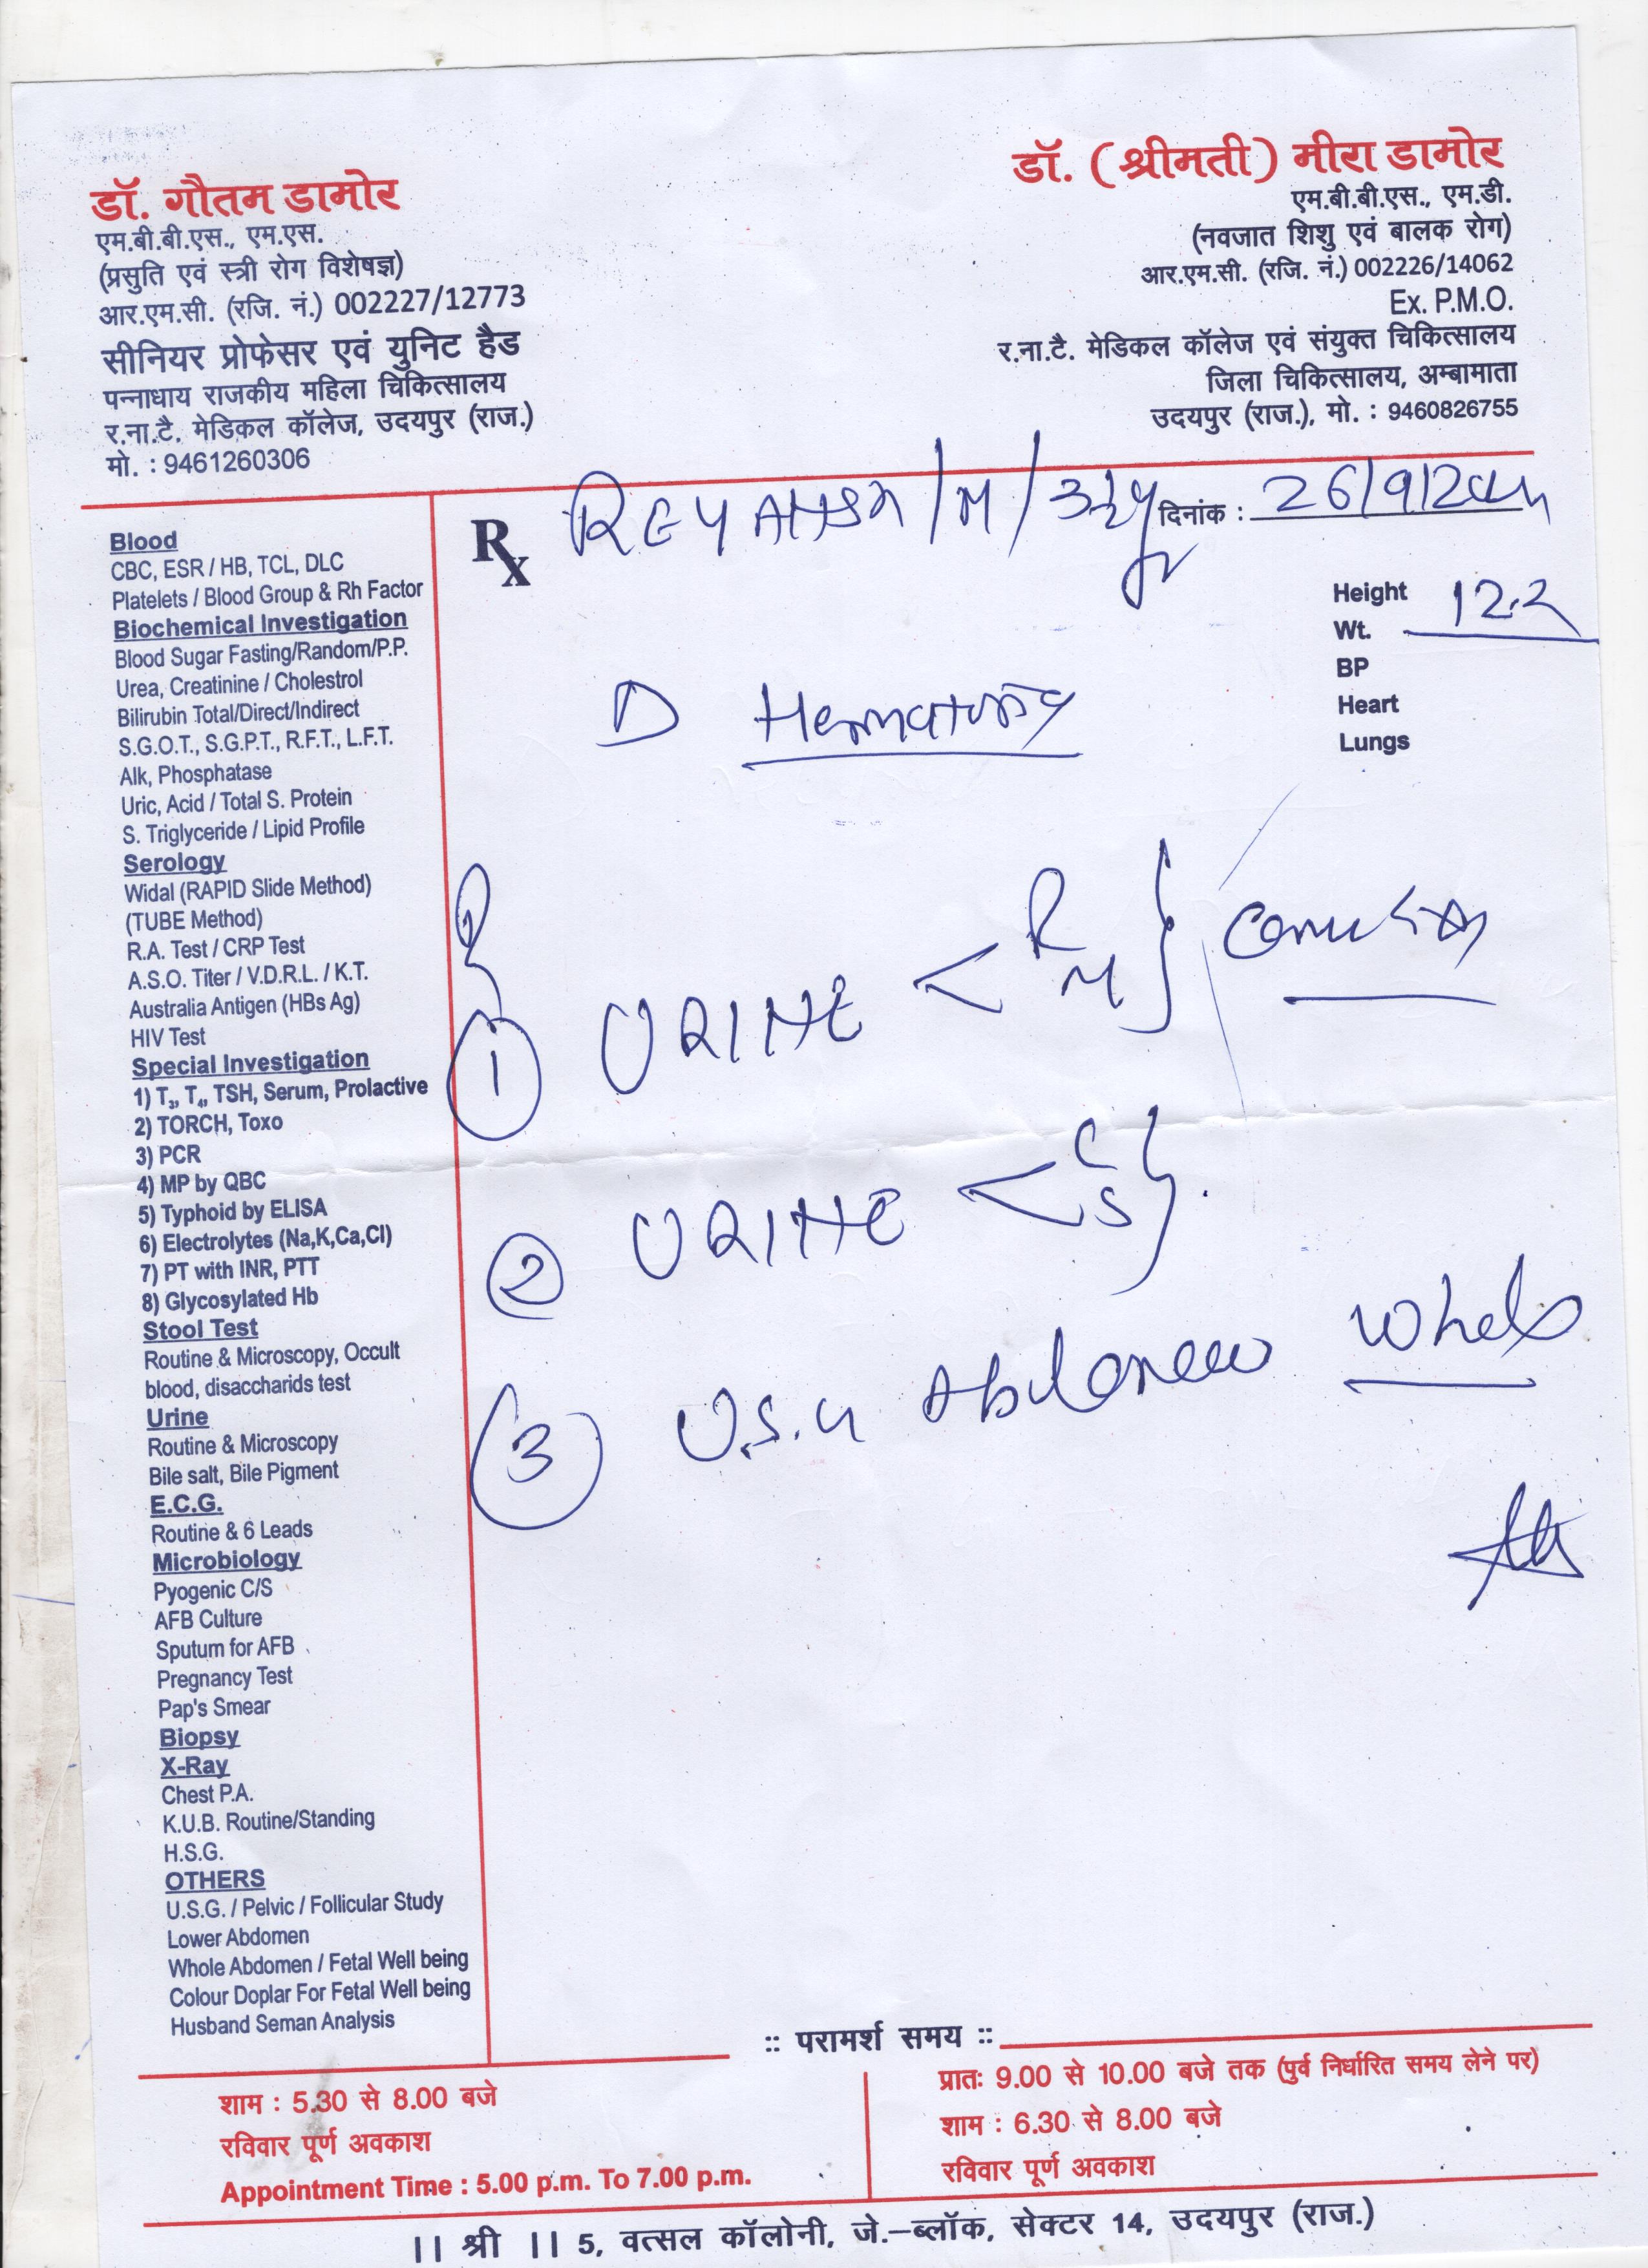 डॉ. गौतम डामोर
एम.बी.बी.एस., एम.एस.
(प्रसुति एवं स्त्री रोग विशेषज्ञ)
आर.एम.सी. (रजि. नं.) 002227/12773
सीनियर प्रोफेसर एवं युनिट हैड
पन्नाधाय राजकीय महिला चिकित्सालय
र.ना.टै. मेडिकल कॉलेज, उदयपुर (राज.)
मो. : 9461260306
डॉ. (श्रीमती) मीरा डामोर
एम.बी.बी.एस., एम.डी.
(नवजात शिशु एवं बालक रोग)
आर.एम.सी. (रजि. नं.) 002226/14062
Ex. P.M.O.
र.ना.टै. मेडिकल कॉलेज एवं संयुक्त चिकित्सालय
जिला चिकित्सालय, अम्बामाता
उदयपुर (राज.), मो. : 9460826755
Blood
CBC, ESR / HB, TCL, DLC
Platelets / Blood Group & Rh Factor
Biochemical Investigation
Blood Sugar Fasting/Random/P.P.
Urea, Creatinine / Cholestrol
Bilirubin Total/Direct/Indirect
S.G.O.T., S.G.P.T., R.F.T., L.F.T.
Alk, Phosphatase
Uric, Acid / Total S. Protein
S. Triglyceride / Lipid Profile
Serology
Widal (RAPID Slide Method)
(TUBE Method)
R.A. Test / CRP Test
A.S.O. Titer / V.D.R.L. / K.T.
Australia Antigen (HBs Ag)
HIV Test
Special Investigation
1) T3, T4, TSH, Serum, Prolactive
2) TORCH, Toxo
3) PCR
4) MP by QBC
5) Typhoid by ELISA
6) Electrolytes (Na,K,Ca,Cl)
7) PT with INR, PTT
8) Glycosylated Hb
Stool Test
Routine & Microscopy, Occult
blood, disaccharids test
Urine
Routine & Microscopy
Bile salt, Bile Pigment
E.C.G.
Routine & 6 Leads
Microbiology
Pyogenic C/S
AFB Culture
Sputum for AFB
Pregnancy Test
Pap's Smear
Biopsy
X-Ray
Chest P.A.
K.U.B. Routine/Standing
H.S.G.
OTHERS
U.S.G. / Pelvic / Follicular Study
Lower Abdomen
Whole Abdomen / Fetal Well being
Colour Doplar For Fetal Well being
Husband Seman Analysis
Rx REYANSH /M/ दिनांक : 26/9/
Height
Wt. 12.2
BP
Heart
Lungs
Hematuria
1 URINE < R M }
2 URINE < C S }
3 U.S.G Abdomen Whole
:: परामर्श समय ::
शाम : 5.30 से 8.00 बजे
रविवार पूर्ण अवकाश
Appointment Time : 5.00 p.m. To 7.00 p.m.
प्रातः 9.00 से 10.00 बजे तक (पुर्व निर्धारित समय लेने पर)
शाम : 6.30 से 8.00 बजे
रविवार पूर्ण अवकाश
|| श्री || 5, वत्सल कॉलोनी, जे.-ब्लॉक, सेक्टर 14, उदयपुर (राज.)